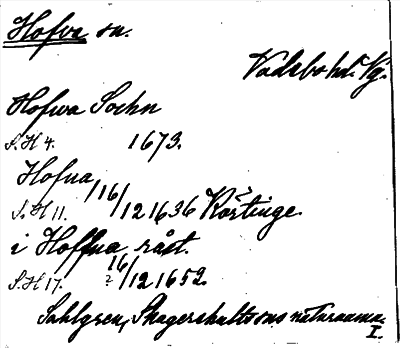 Hofva sn.
Vadsbo hd. Vg.
Hofwa Sochn
S.H 4. 1673.
Hofua
S.H 11. 16/12 1636 Körtinge.
i Hoffua råst.
S.H 17. 16/12 1652.
Sahlgren, Skagershults sns naturnamn I.